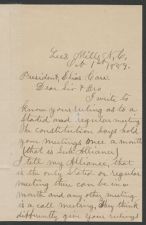 Lees Mills, N.C.
Feb 1st 1889.
President, Elias Carr
Dear Sir & Bro
I write to
know your ruling as to a
Stated and regular meeting
The constitution says hold
your meetings once a month
(that is Sub. Alliance)
I tell my Alliance, that
is the only Stated or regular
meeting there can be in a
month and any other meeting
is a call meeting, they think
differently give your rulings